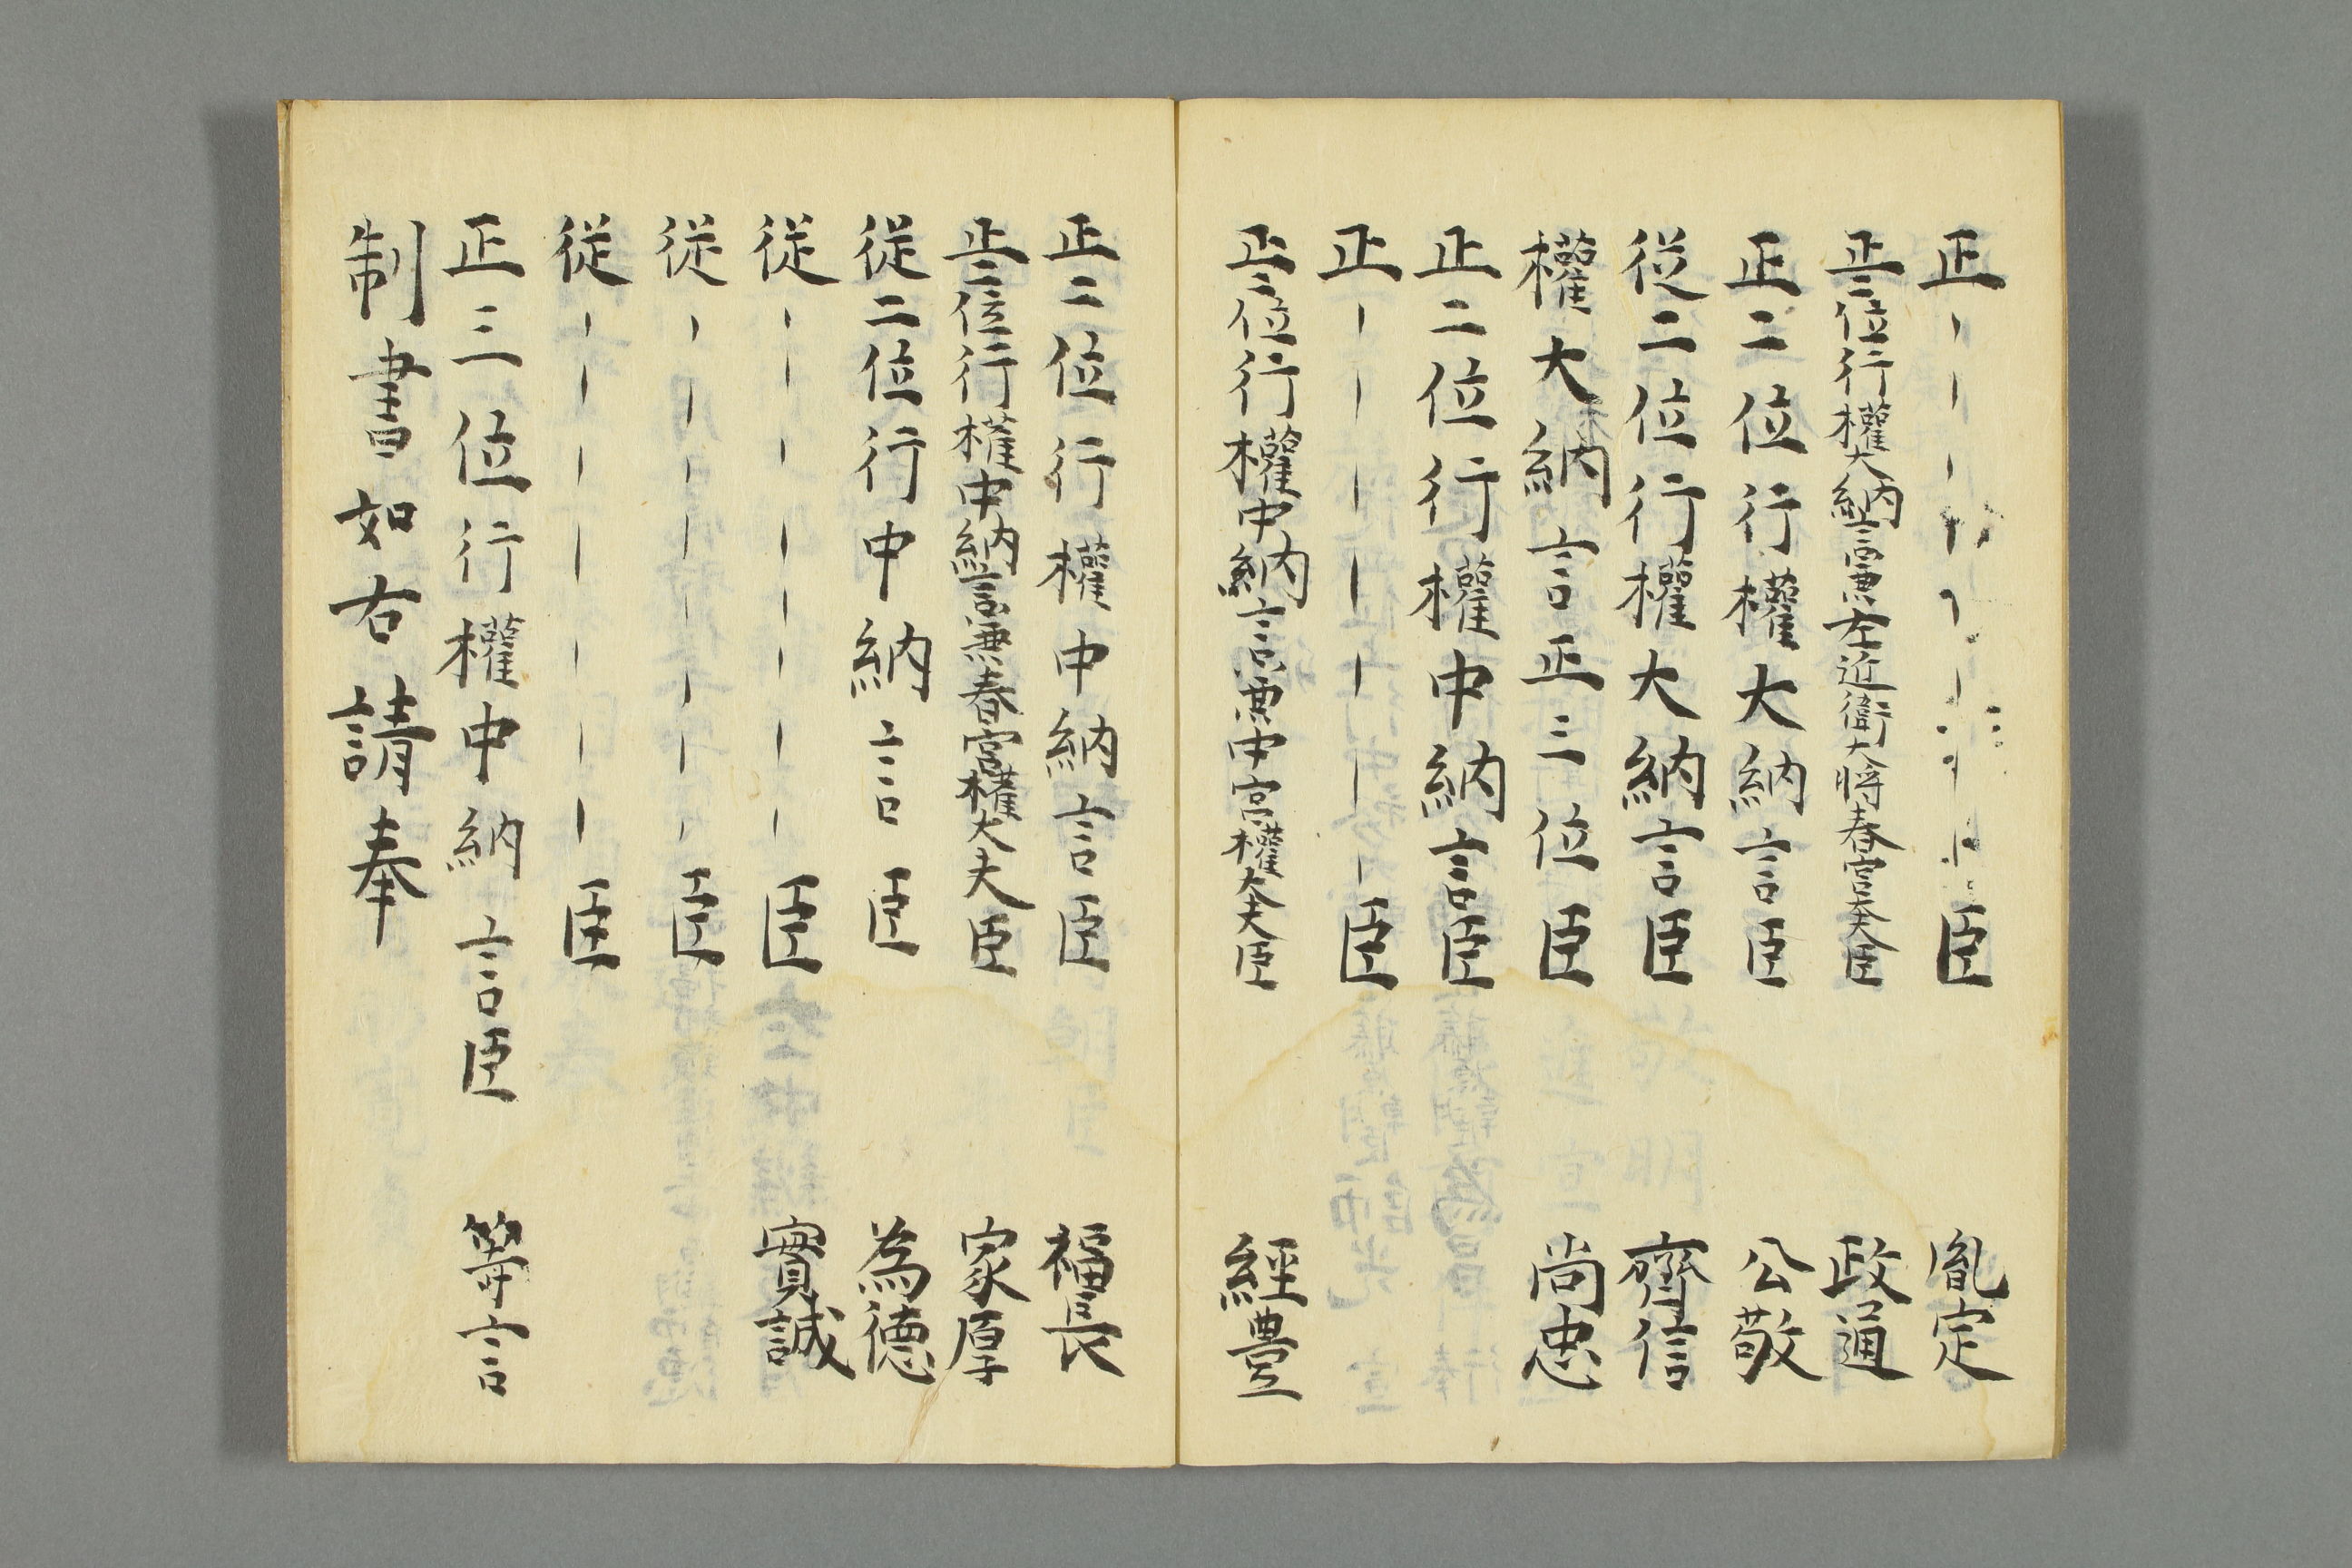 正ーーー臣 胤定
正二位行權大納言兼左近衛大将春宮大夫臣 政通
正二位行權大納言臣 公敬
従二位行權大納言臣 齊信
權大納言正三位臣 尚忠
正二位行權中納言臣
正ーーーーーーー臣
正二位行權中納言兼中宮權大夫臣 經豊
正二位行權中納言臣 福長
正二位行權中納言兼春宮權大夫臣 家厚
従二位行中納言臣 為德
従ーーーーーー臣 實誠
従ーーーーーーー臣
従ーーーーーー臣
正三位行權中納言臣 等言
制書如右請奉